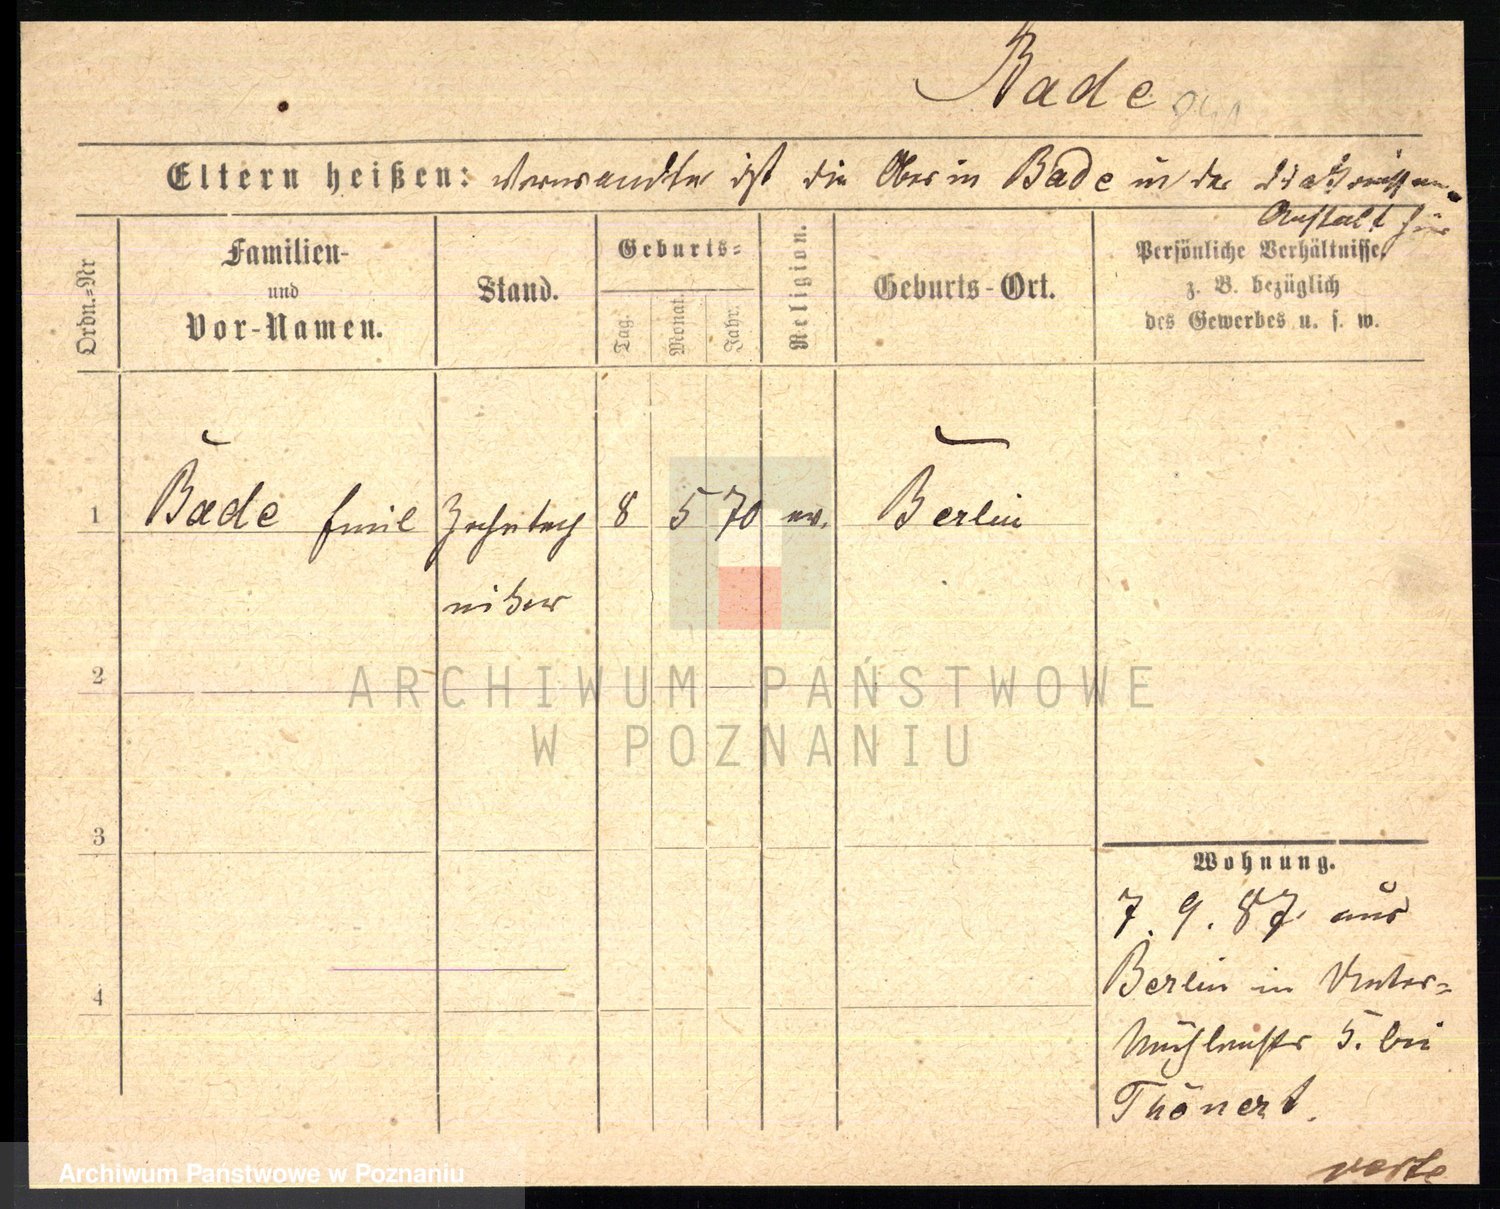 Bade
Eltern heißen: Verwandte ist die Oberin Bade in der Diakonissen-
Anstalt hier
Ordn.-Nr
Familien-
und
Vor-Namen.
Stand.
Geburts-
Tag.
Monat.
Jahr.
Religion.
Geburts-Ort.
Persönliche Verhältnisse,
z. B. bezüglich
des Gewerbes u. s. w.
1 Bade Emil Zahntech 8 5 70 ev. Berlin
niker
2
ARCHIWUM PAŃSTWOWE
W POZNANIU
3
Wohnung.
7. 9. 87. aus
Berlin in Unter-
Mühlenstr 5. bei
Thönert.
4
verte
Archiwum Panstwowe w Poznaniu